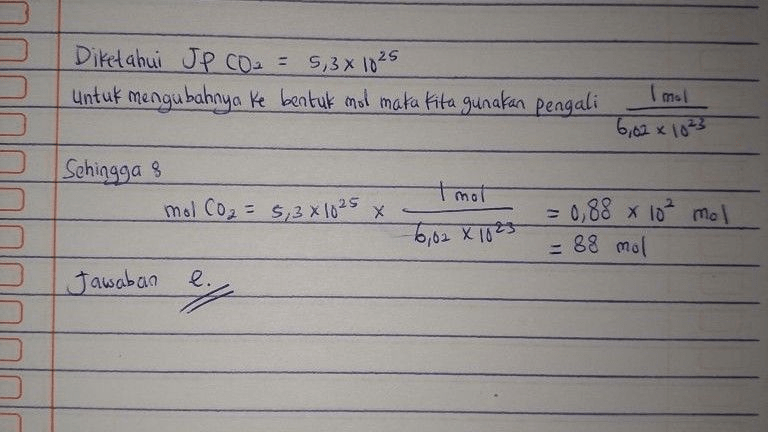 Diketahui JP CO₂ = 5,3 × 10²⁵
untuk mengubahnya ke bentuk mol maka kita gunakan pengali 1 mol / 6,02 × 10²³
Sehingga :
mol CO₂ = 5,3 × 10²⁵ × 1 mol / 6,02 × 10²³ = 0,88 × 10² mol
= 88 mol
Jawaban e.